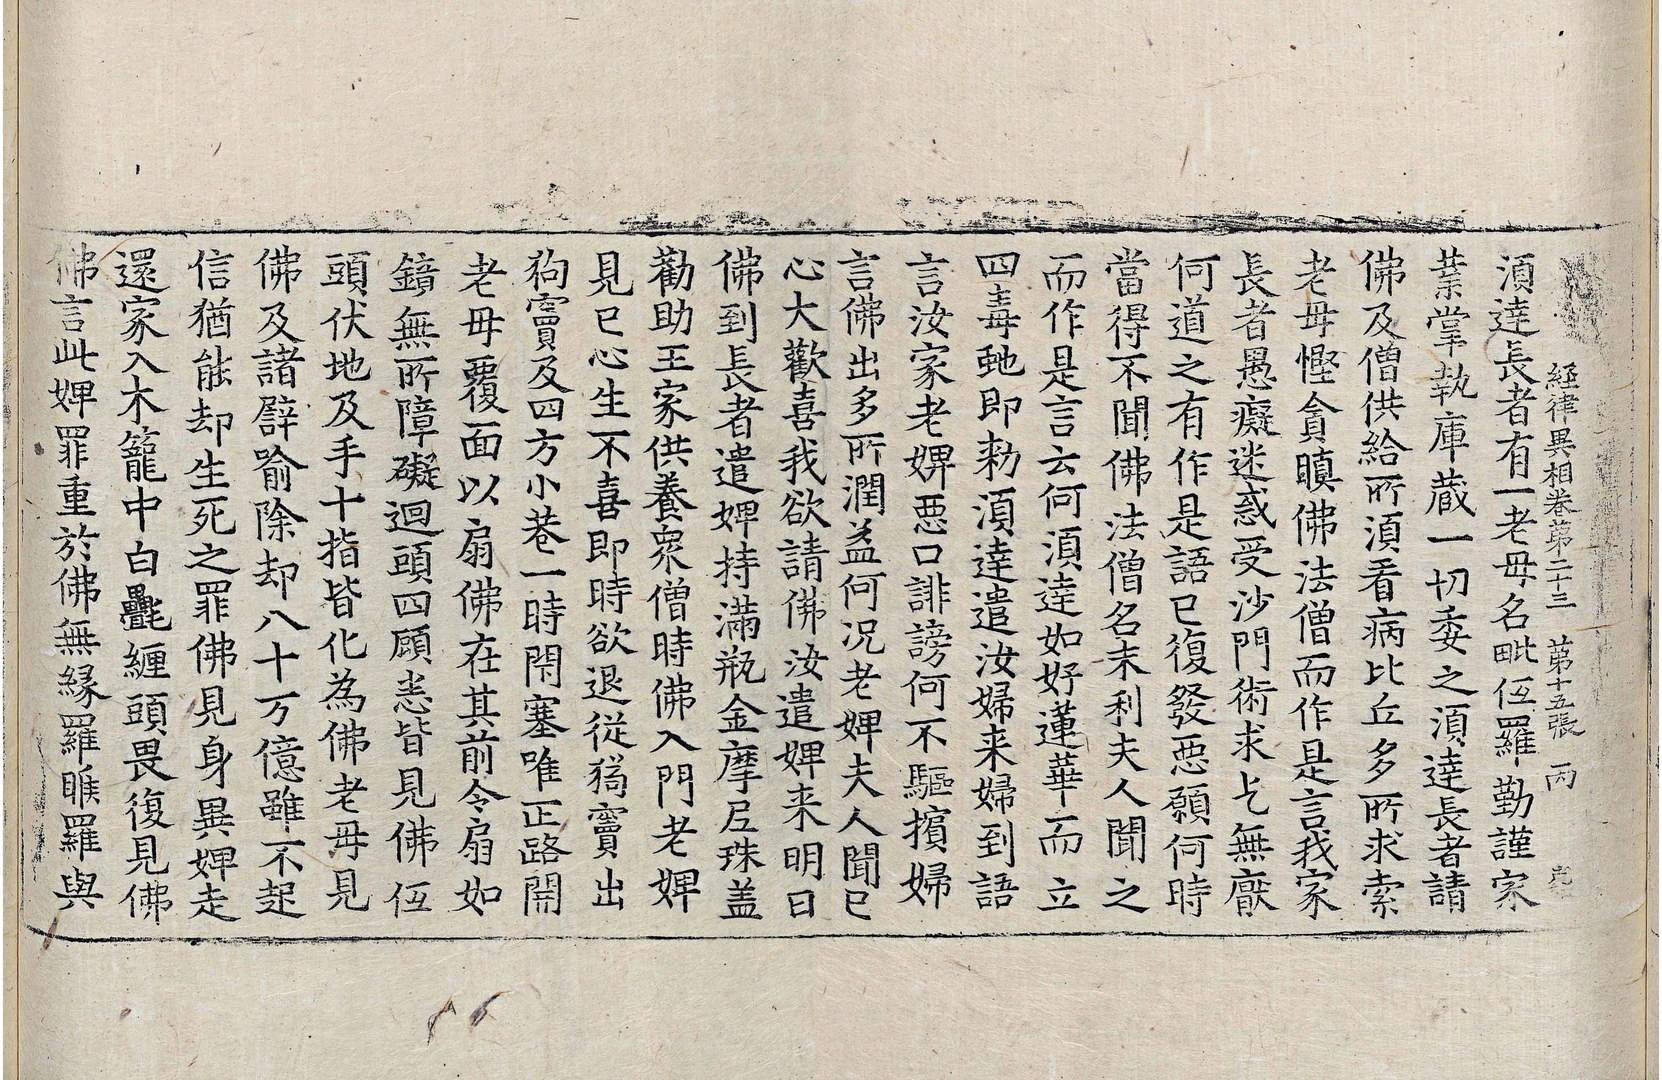 経律異相卷第二十三 第十五張 丙
湏達長者有一老母名毗伍羅勤謹家
業掌執庫蔵一切委之湏達長者請
佛及僧供給所湏看病比丘多所求索
老母慳貪瞋佛法僧而作是言我家
長者愚癡迷惑受沙門術求乞無厭
何道之有作是語已復發惡願何時
當得不聞佛法僧名末利夫人聞之
而作是言云何湏達如好蓮華而立
四毒虵即勑湏達遣汝婦来婦到語
言汝家老婢惡口誹謗何不驅擯婦
言佛出多所潤益何况老婢夫人聞已
心大歡喜我欲請佛汝遣婢来明日
佛到長者遣婢持滿瓶金摩尼珠盖
勸助王家供養衆僧時佛入門老婢
見已心生不喜即時欲退従狗竇出
狗竇及四方小巷一時閇塞唯正路開
老母覆面以扇佛在其前令扇如
鏡無所障礙迴頭四顧悉皆見佛伍
頭伏地及手十指皆化為佛老母見
佛及諸譬喻除却八十万億雖不起
信猶能却生死之罪佛見身異婢走
還家入木籠中白㲲纏頭畏復見佛
佛言此婢罪重於佛無縁羅睺羅與